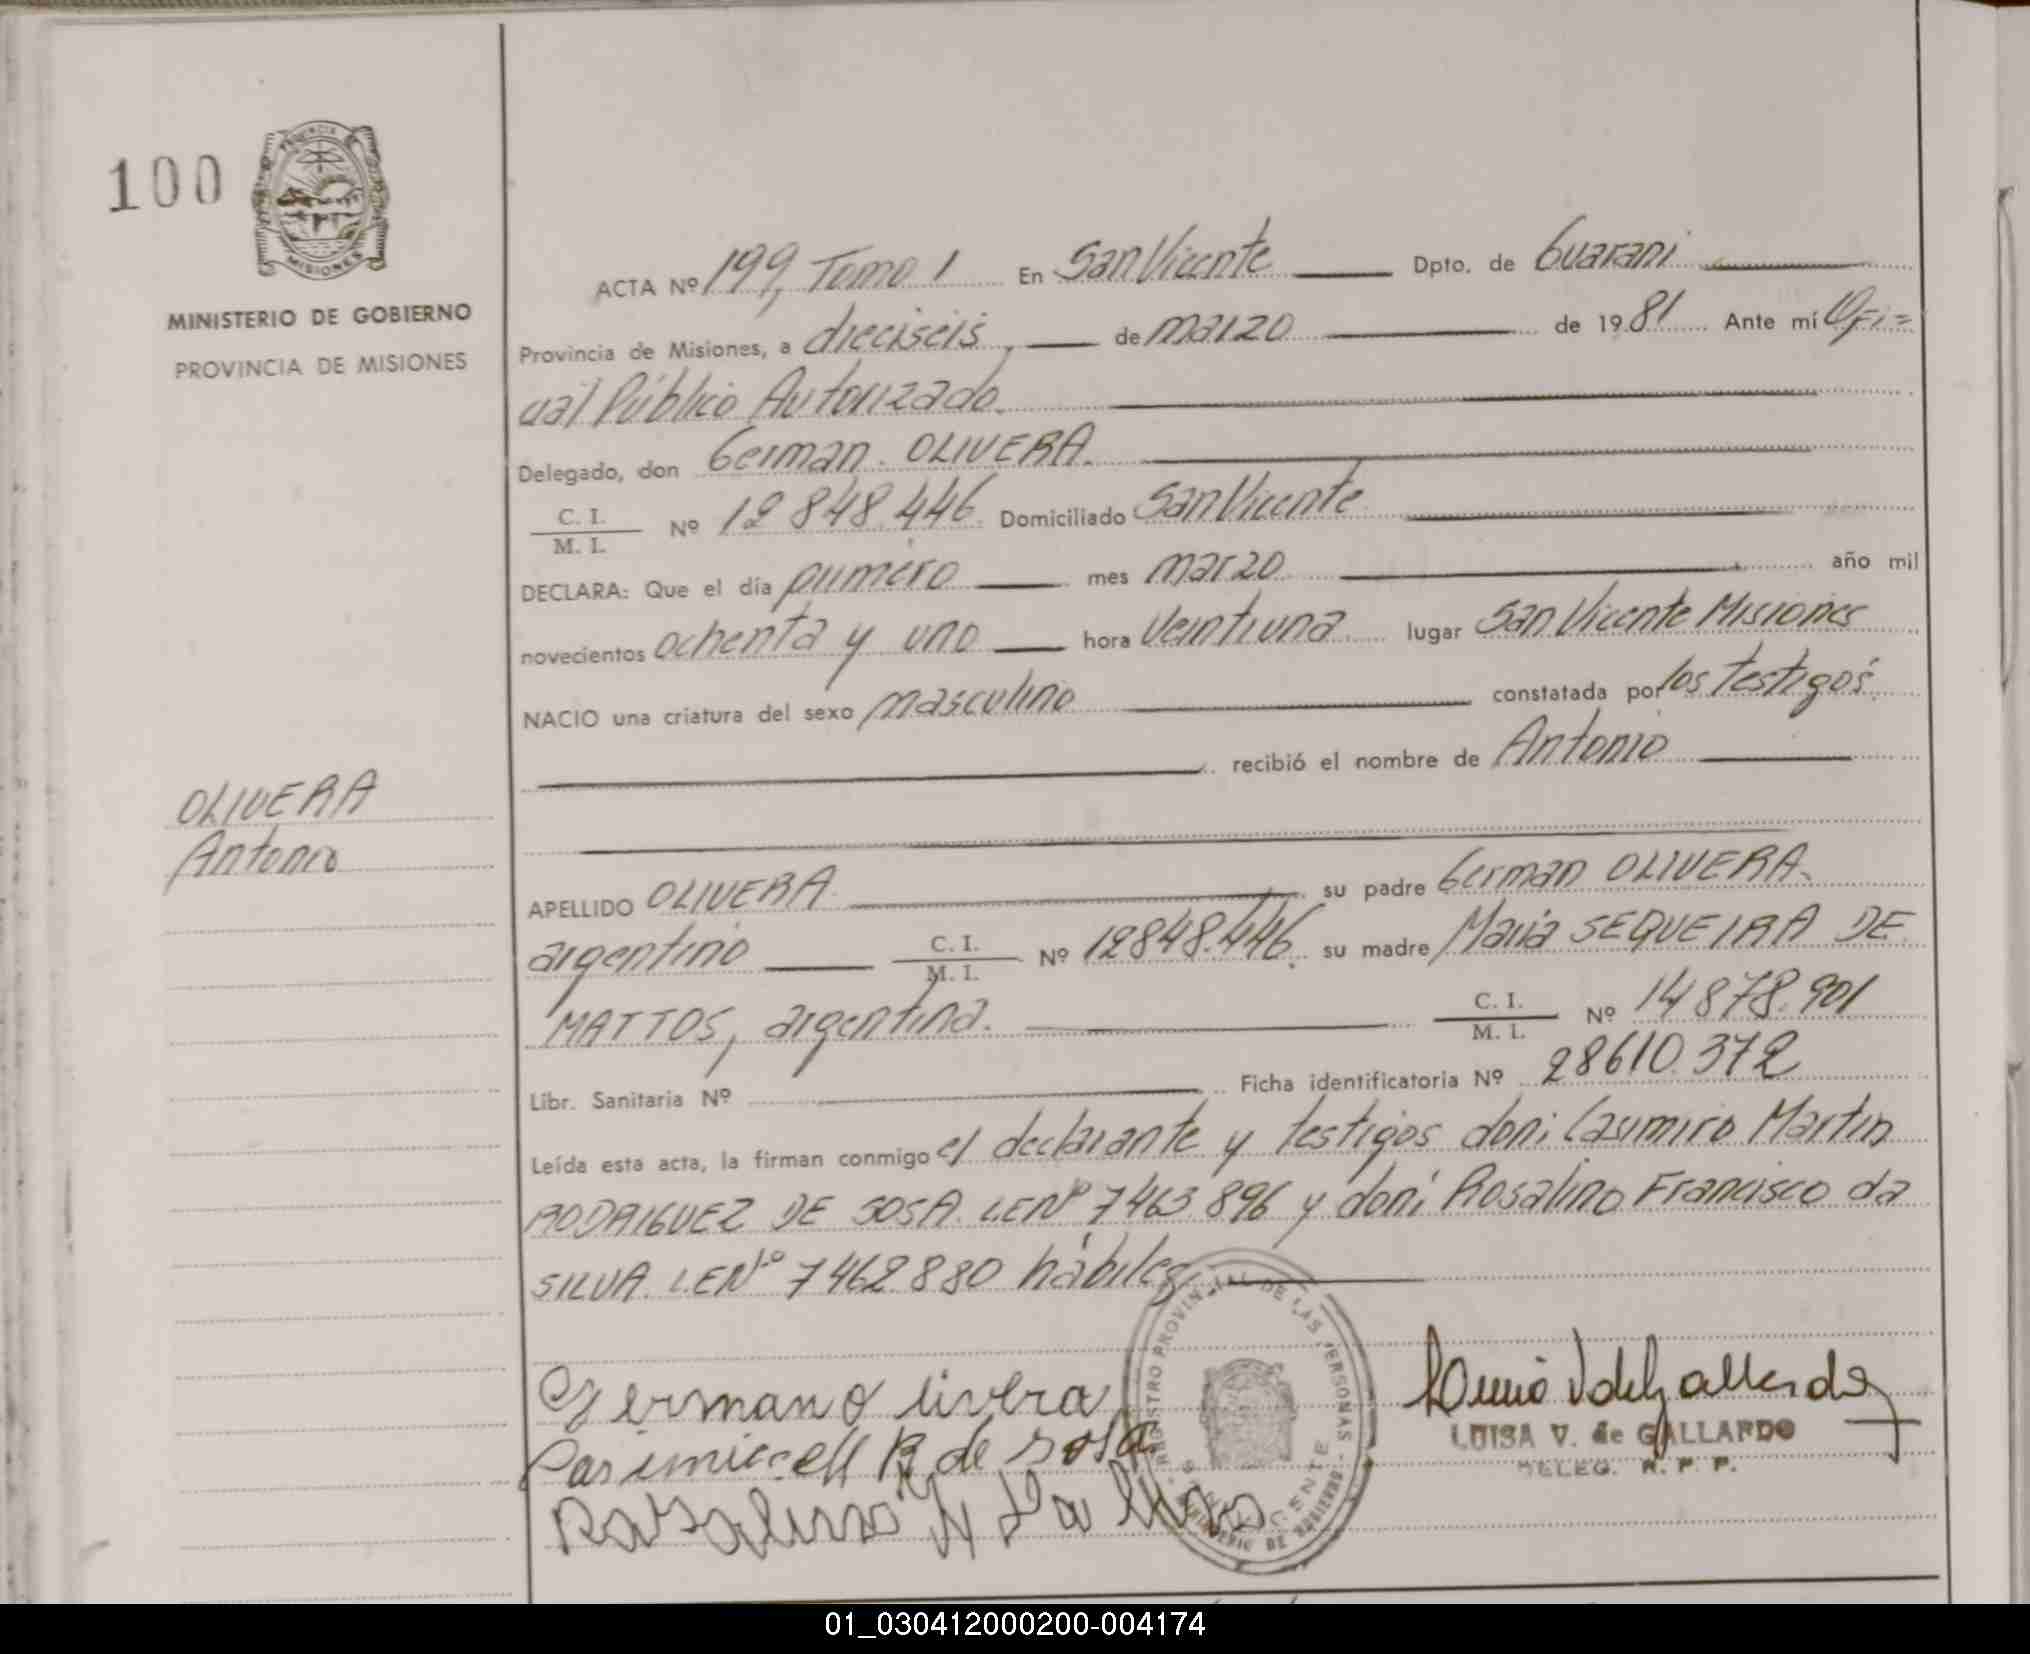 100
PROVINCIA DE
MISIONES
MINISTERIO DE GOBIERNO
PROVINCIA DE MISIONES
OLIVERA
Antonio
ACTA Nº 199, Tomo 1 En San Vicente Dpto. de Guarani
Provincia de Misiones, a dieciseis, de marzo de 1981 Ante mí Ofi=
cial Público Autorizado.
Delegado, don German OLIVERA.
C. I.
M. I. Nº 12848.446. Domiciliado San Vicente
DECLARA: Que el día primero mes marzo año mil
novecientos ochenta y uno hora veintiuna lugar San Vicente Misiones
NACIO una criatura del sexo masculino constatada por los testigos.
recibió el nombre de Antonio
APELLIDO OLIVERA su padre German OLIVERA.
argentino C. I. M. I. Nº 12848.446. su madre Maria SEQUEIRA DE
MATTOS, argentina. C. I. M. I. Nº 14878.901
Libr. Sanitaria Nº Ficha identificatoria Nº 28610.372
Leída esta acta, la firman conmigo el declarante y testigos don: Casimiro Martin
RODRIGUEZ DE SOSA. L.E Nº 7463.896 y don: Rosalino Francisco da
SILVA. L.E Nº 7462.880 hábiles
German Olivera
R de sosa
LUISA V. de GALLARDO
DELEG. R. P. P.
REGISTRO PROVINCIAL DE LAS PERSONAS - MINISTERIO DE GOBIERNO
SAN VICENTE
01_030412000200-004174